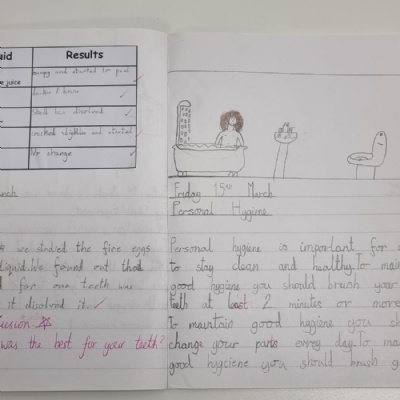 uid Results
bumpy and started to peel
e juice
Shell has disolved
cracked slightly and
No change
we studied the five eggs
liquid. We found out that
for our teeth was
it disolved it.
usion
was the best for your teeth?
Friday 15th March
Personal Hygiene
Personal hygiene is important for
to stay clean and healthy. To main
good hygiene you should brush your
teeth at least 2 minutes or more
To maintain good hygiene you sh
change your pants every day. To ma
good hygciene you should brush